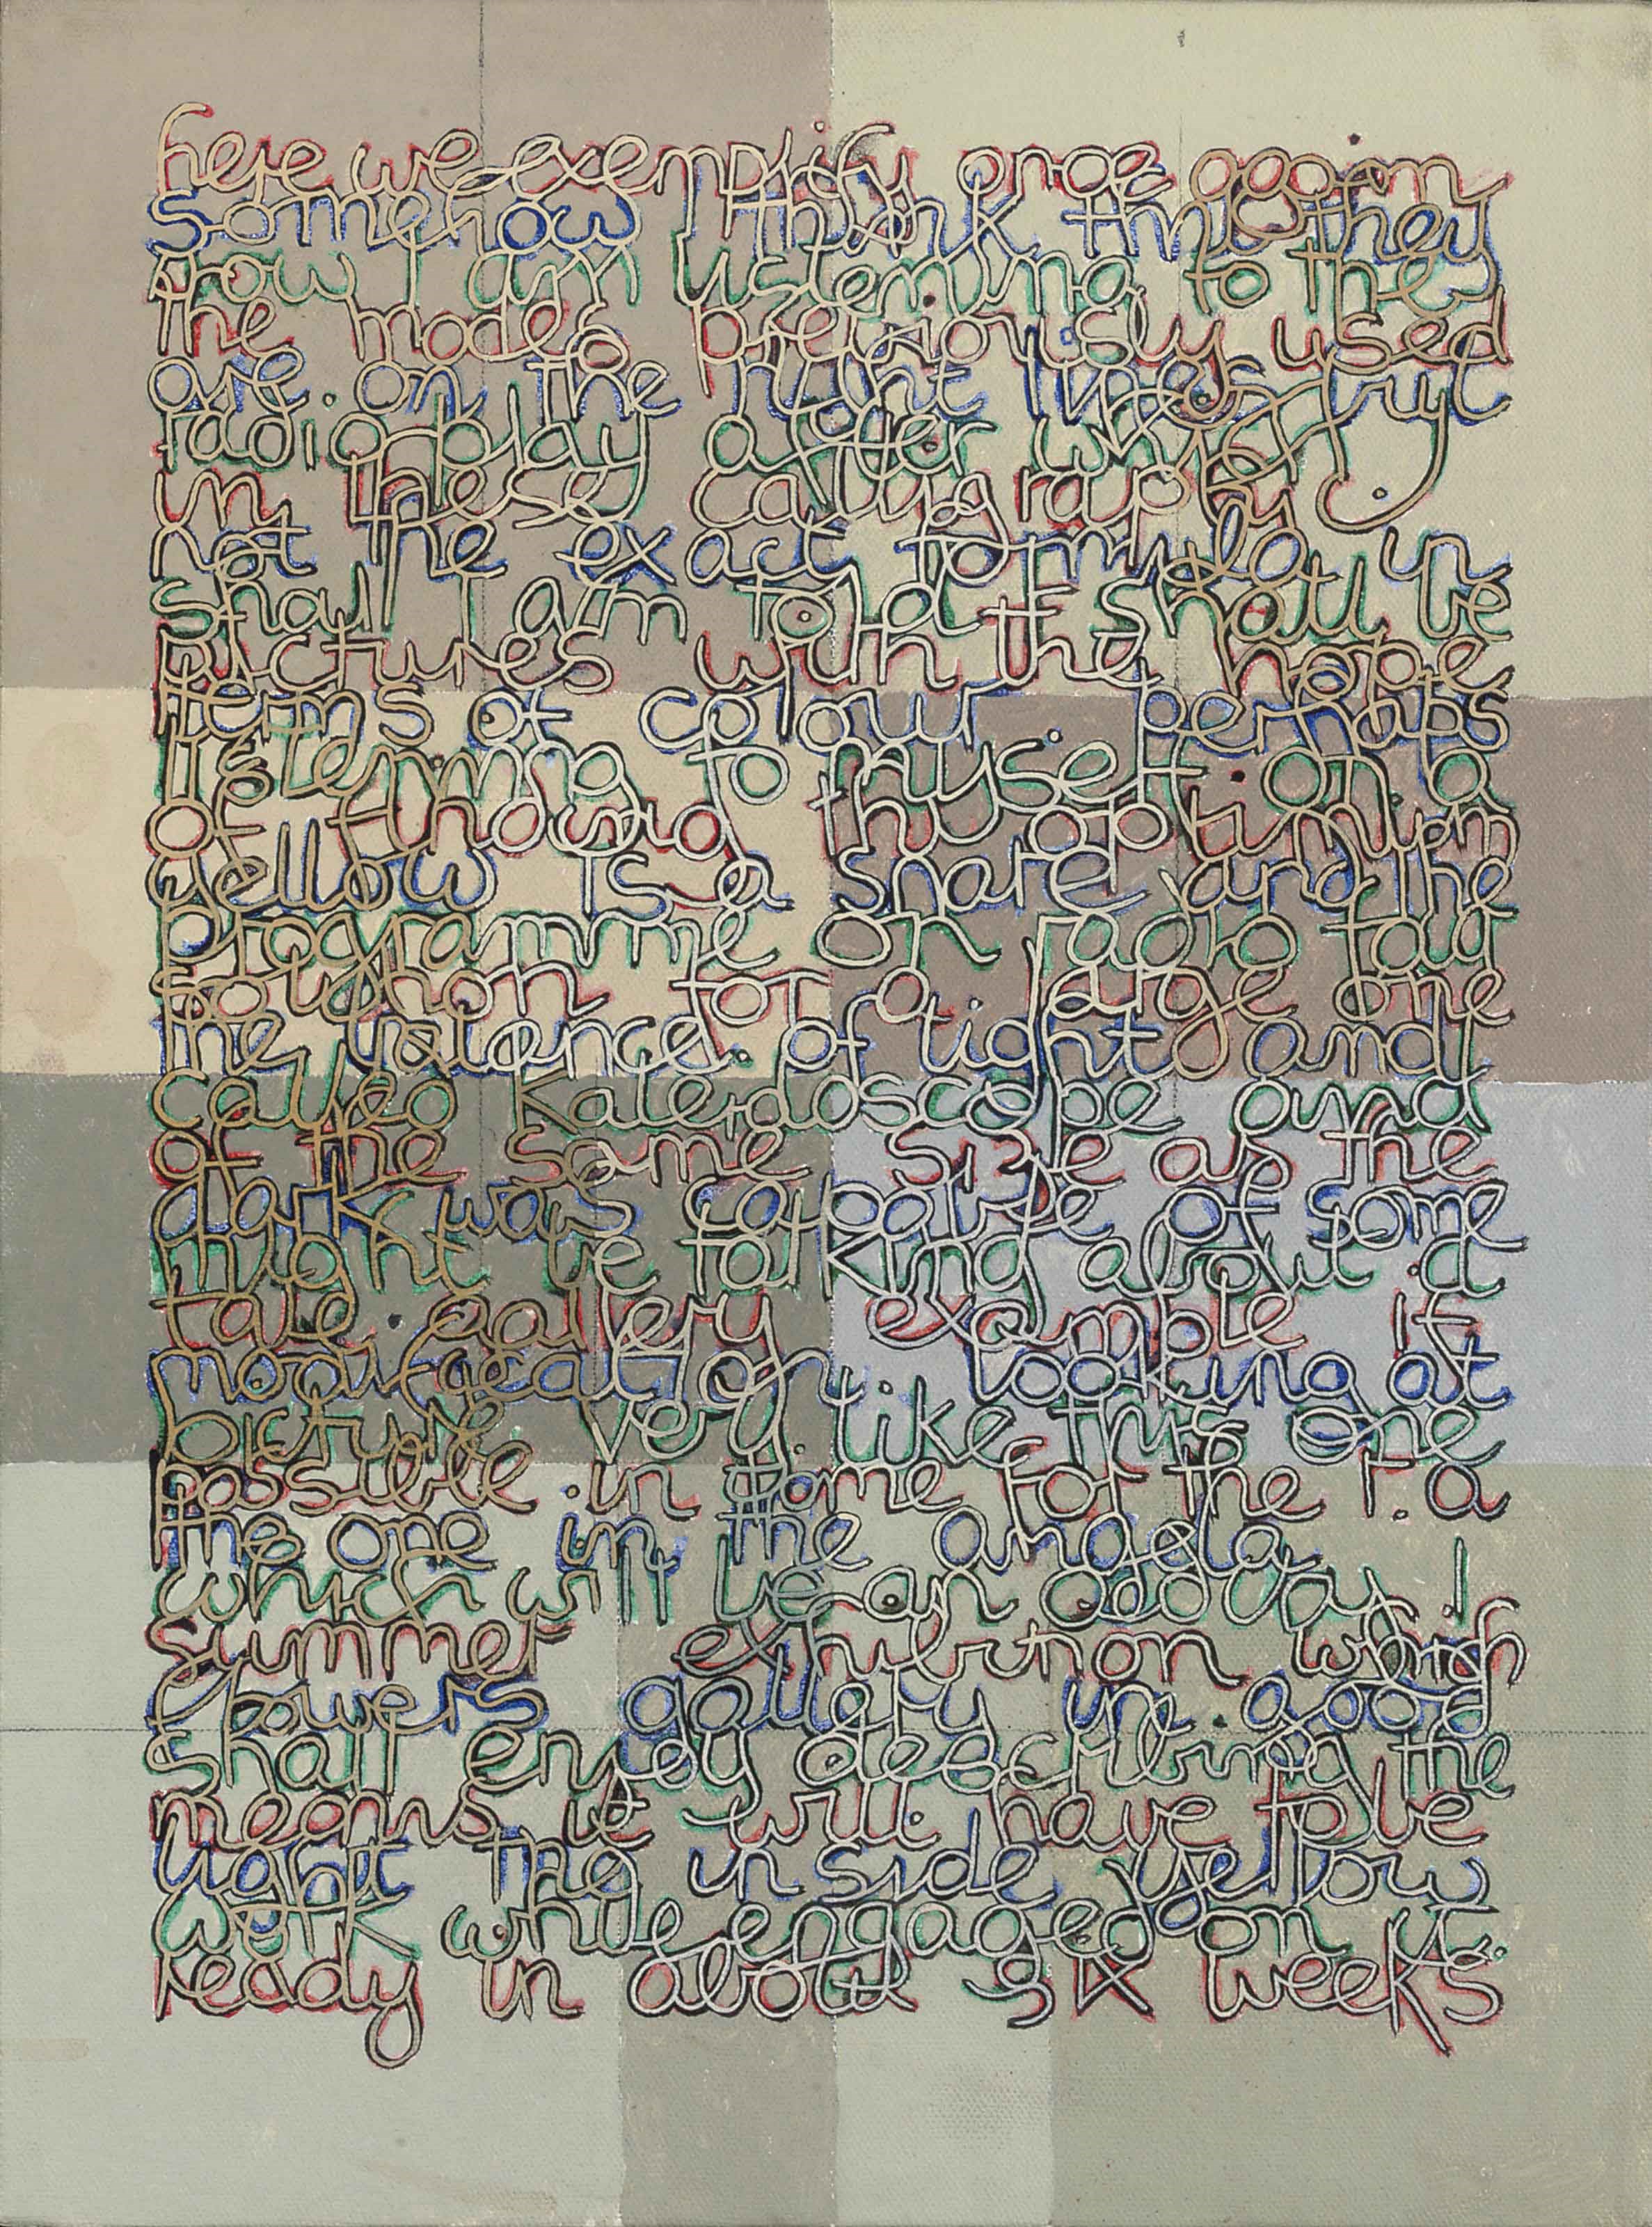 here we exemplify once again
somehow I think this they
now I am listening to the
the modes previously used
are on the right lines but
radio play after which I
in these calligraphy
not the exact formula in
shall I am told I shall be
pictures with the hope
terms of colour perhaps
listening to myself on a
of finding the optimum
yellow is a share and the
programme on radio four
for a large one
the balance of light and
called kaleidoscope and
of the same size as the
dark was of some
might be talking about a
tate gallery example if
modification looking at
picture very like this one
possible in time for the r.a
the one in the angela
which will be an odd day I
summer exhibition which
flowers gallery in good
shall enjoy describing the
means it will have to be
light the inside yellow
work while engaged on it.
ready in about six weeks